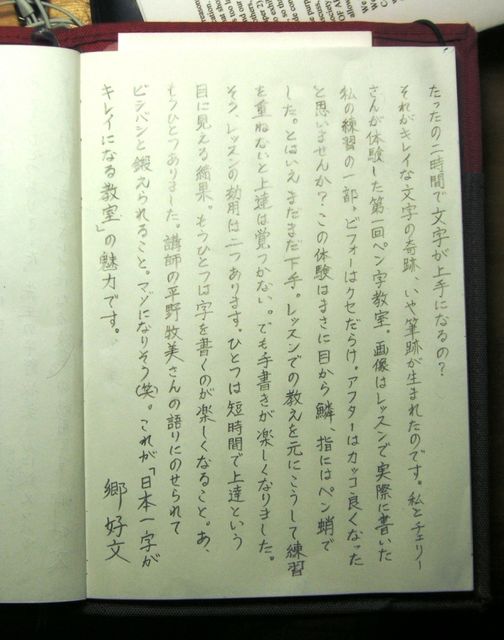 たったの二時間で文字が上手になるの？
それがキレイな文字の奇跡、いや筆跡が生まれたのです。私とチェリー
さんが体験した第一回ペン字教室。画像はレッスンで実際に書いた
私の練習の一部。ビフォーはクセだらけ。アフターはカッコ良くなった
と思いませんか？この体験はまさに目から鱗、指にはペン蛸で
した。とはいえまだまだ下手。レッスンでの教えを元にこうして練習
を重ねないと上達は覚つかない。でも手書きが楽しくなりました。
そう、レッスンの効用は二つあります。ひとつは短時間で上達という
目に見える結果。もうひとつは字を書くのが楽しくなること。あ、
もうひとつありました。講師の平野牧美さんの語りにのせられて
ビシバシと鍛えられること。マゾになりそう(笑)。これが「日本一字が
キレイになる教室」の魅力です。
郷 好文